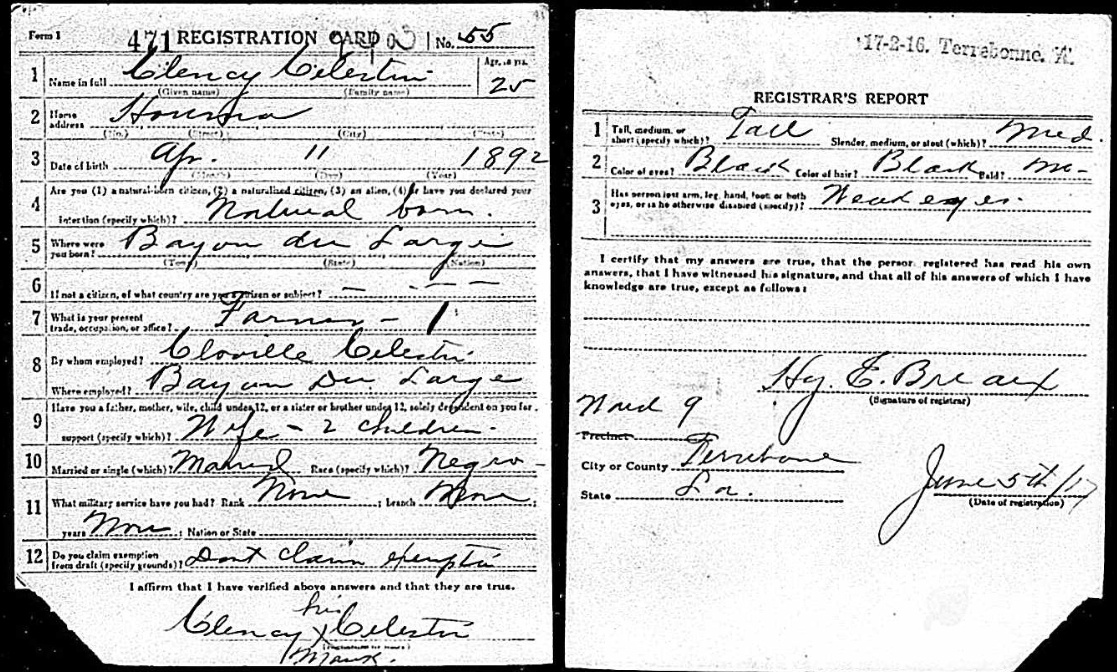 Form 1 471 REGISTRATION CARD No. 55
1 Name in full Clency Celestin Age, in yrs. 25
(Given name) (Family name)
2 Home address Houma
(No.) (Street) (City) (State)
3 Date of birth Ap. 11 1892
(Month) (Day) (Year)
4 Are you (1) a natural-born citizen, (2) a naturalized citizen, (3) an alien, (4) or have you declared your
intention (specify which)? Natural born.
5 Where were you born? Bayou du Large
(Town) (State) (Nation)
6 If not a citizen, of what country are you a citizen or subject? — — —
7 What is your present trade, occupation, or office? Farmer — 1
8 By whom employed? Cloville Celestin
Where employed? Bayou Du Large
9 Have you a father, mother, wife, child under 12, or a sister or brother under 12, solely dependent on you for
support (specify which)? Wife - 2 children.
10 Married or single (which)? Married Race (specify which)? Negro -
11 What military service have you had? Rank None ; branch None ;
years None ; Nation or State
12 Do you claim exemption from draft (specify grounds)? Dont claim exemptin
I affirm that I have verified above answers and that they are true.
his
Clency X Celestin
mark.
17-2-16. Terrebonne. A.
REGISTRAR'S REPORT
1 Tall, medium, or short (specify which)? Tall Slender, medium, or stout (which)? Med.
2 Color of eyes? Black Color of hair? Black Bald? No-
3 Has person lost arm, leg, hand, foot, or both eyes, or is he otherwise disabled (specify)? Weak eyes.
I certify that my answers are true, that the person registered has read his own
answers, that I have witnessed his signature, and that all of his answers of which I have
knowledge are true, except as follows:
Hy. E. Breaux
(Signature of registrar)
Ward 9
Precinct
City or County Terrebonne
State La.
June 5th/17
(Date of registration)